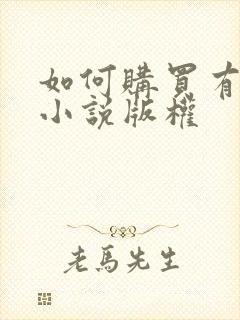 如何購買有
小說版權
老馬先生